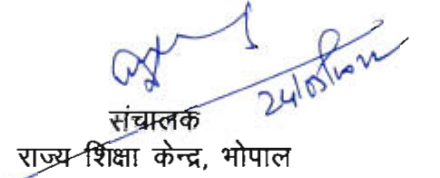 संचालक
राज्य शिक्षा केन्द्र, भोपाल